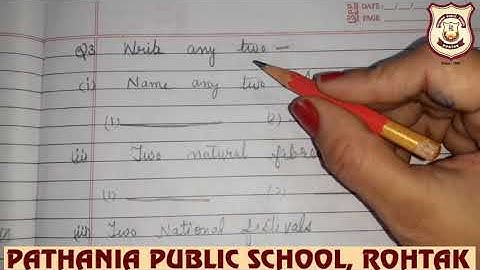 DATE: __/__/__
PAGE
Q3 Write any two –
(i) Name any two
(1) ________ (2)
(ii) Two natural fibre
(1) ________ (2)
(iii) Two National festivals
PATHANIA PUBLIC SCHOOL, ROHTAK